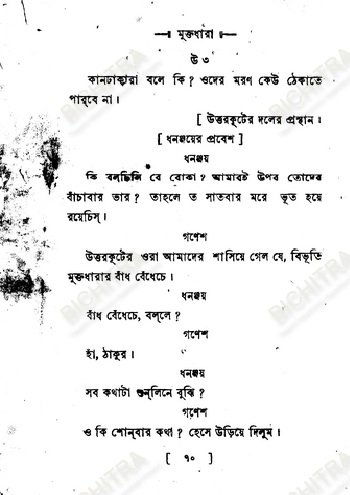 মুক্তধারা
উ ৩
কানঢাকারা বলে কি? ওদের মরণ কেউ ঠেকাতে
পারবে না।
[ উত্তরকূটের দলের প্রস্থান।
[ ধনঞ্জয়ের প্রবেশ ]
ধনঞ্জয়
কি বল্‌ছিলি রে বোকা? আমারই উপর তোদের
বাঁচাবার ভার? তাহলে ত সাতবার মরে ভূত হয়ে
রয়েচিস্।
গণেশ
উত্তরকূটের ওরা আমাদের শাসিয়ে গেল যে, বিভূতি
মুক্তধারার বাঁধ বেঁধেচে।
ধনঞ্জয়
বাঁধ বেঁধেচে, বল্‌লে?
গণেশ
হাঁ, ঠাকুর।
ধনঞ্জয়
সব কথাটা শুন্‌লিনে বুঝি?
গণেশ
ও কি শোন্‌বার কথা? হেসে উড়িয়ে দিলুম।
[ ৭০
BICHITRA